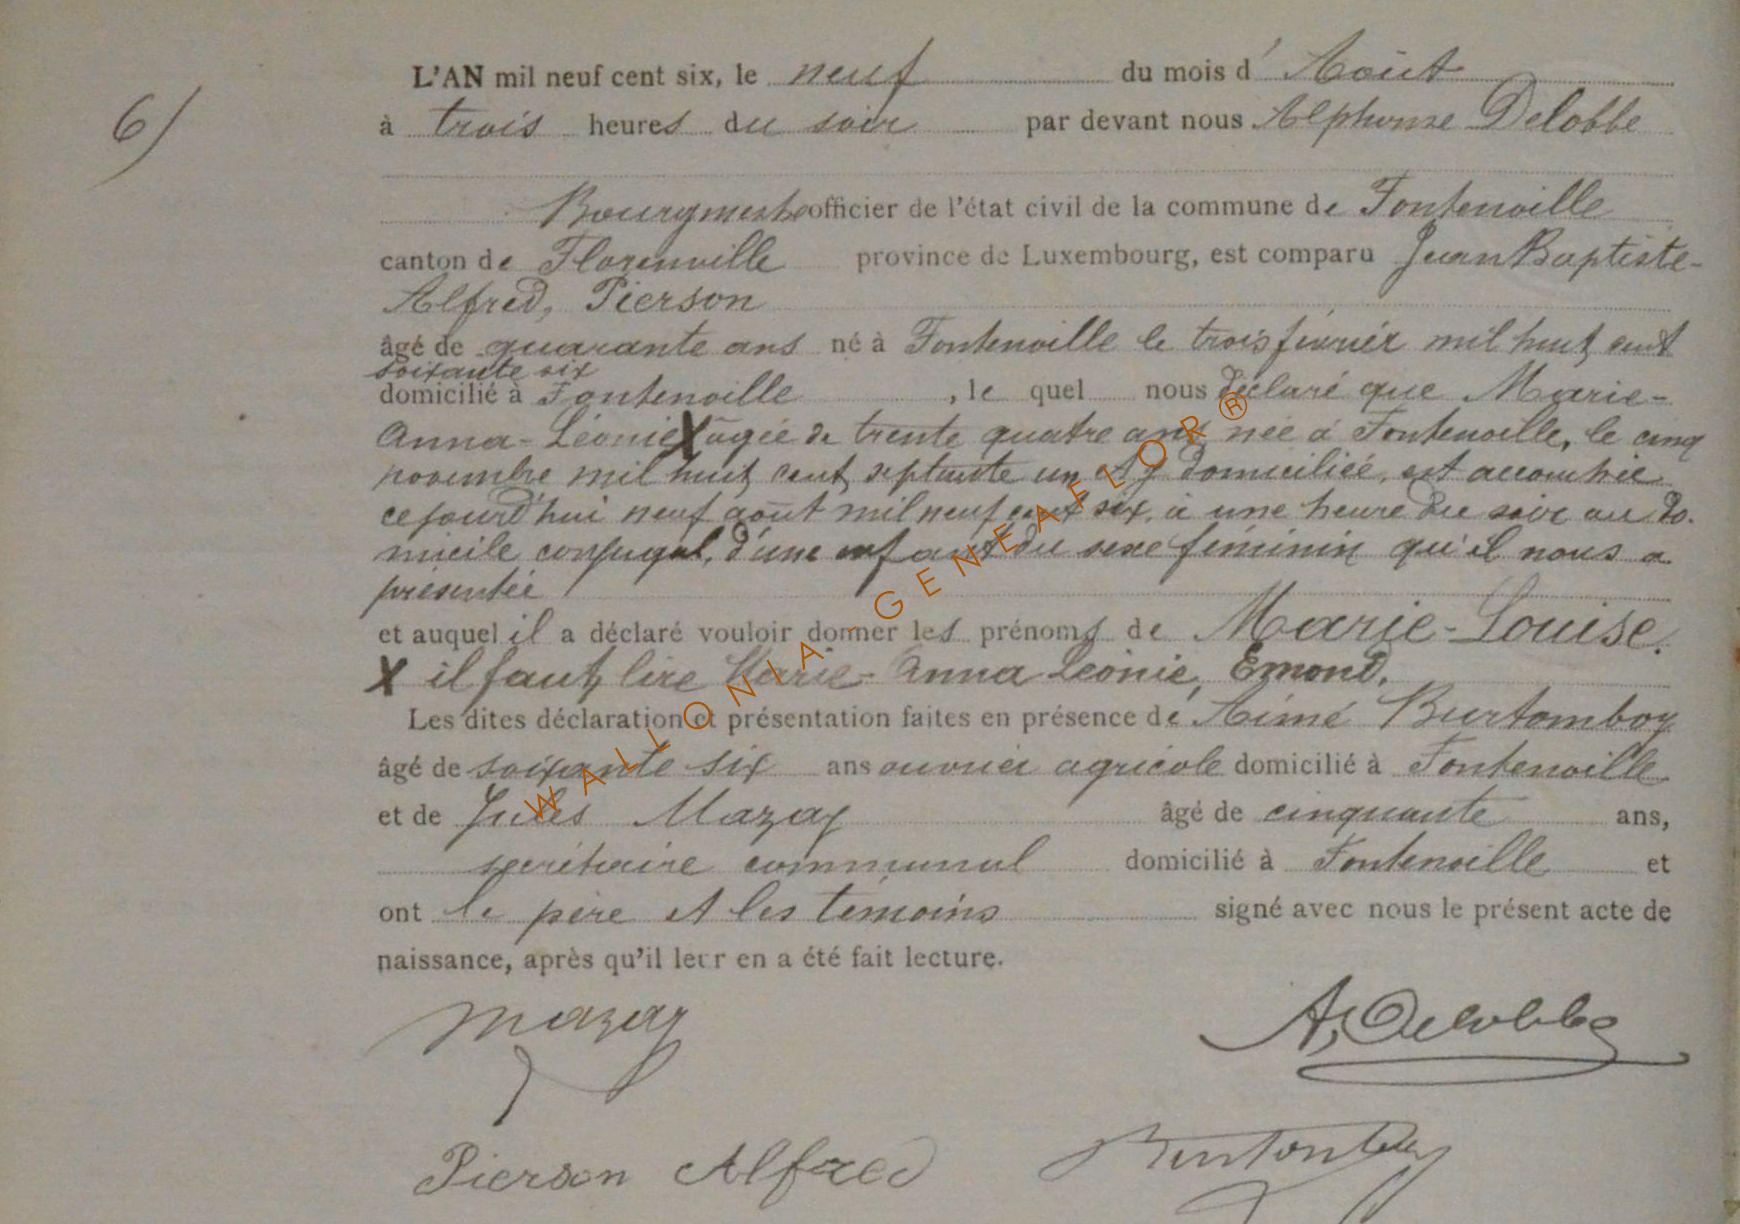 6)
L'AN mil neuf cent six, le neuf du mois d' Août
à trois heures du soir par devant nous Alphonse Delobbe
Bourgmestre officier de l'état civil de la commune de Fontenoille
canton de Florenville province de Luxembourg, est comparu Jean Baptiste-
Alfred, Pierson
âgé de quarante ans né à Fontenoille le trois février mil huit cent
soixante six
domicilié à Fontenoille, le quel nous déclaré que Marie-
Anna-Léonie X âgée de trente quatre ans née à Fontenoille, le cinq
novembre mil huit cent septante un et y domiciliée, est accouchée
cejourd'hui neuf août mil neuf cent six, à une heure du soir au do-
micile conjugal, d'une enfant du sexe féminin qu'il nous a
présentée
et auquel il a déclaré vouloir donner les prénoms de Marie-Louise.
X il faut lire Marie-Anna Léonie, Emond.
Les dites déclaration et présentation faites en présence de Aimé Burtomboy
âgé de soixante six ans ouvrier agricole domicilié à Fontenoille
et de Jules Mazay âgé de cinquante ans,
secrétaire communal domicilié à Fontenoille et
ont le père et les témoins signé avec nous le présent acte de
naissance, après qu'il leur en a été fait lecture.
Mazay
A. Delobbe
Pierson Alfred
Burtomboy
WALLONIA - GENEAFLOR ®